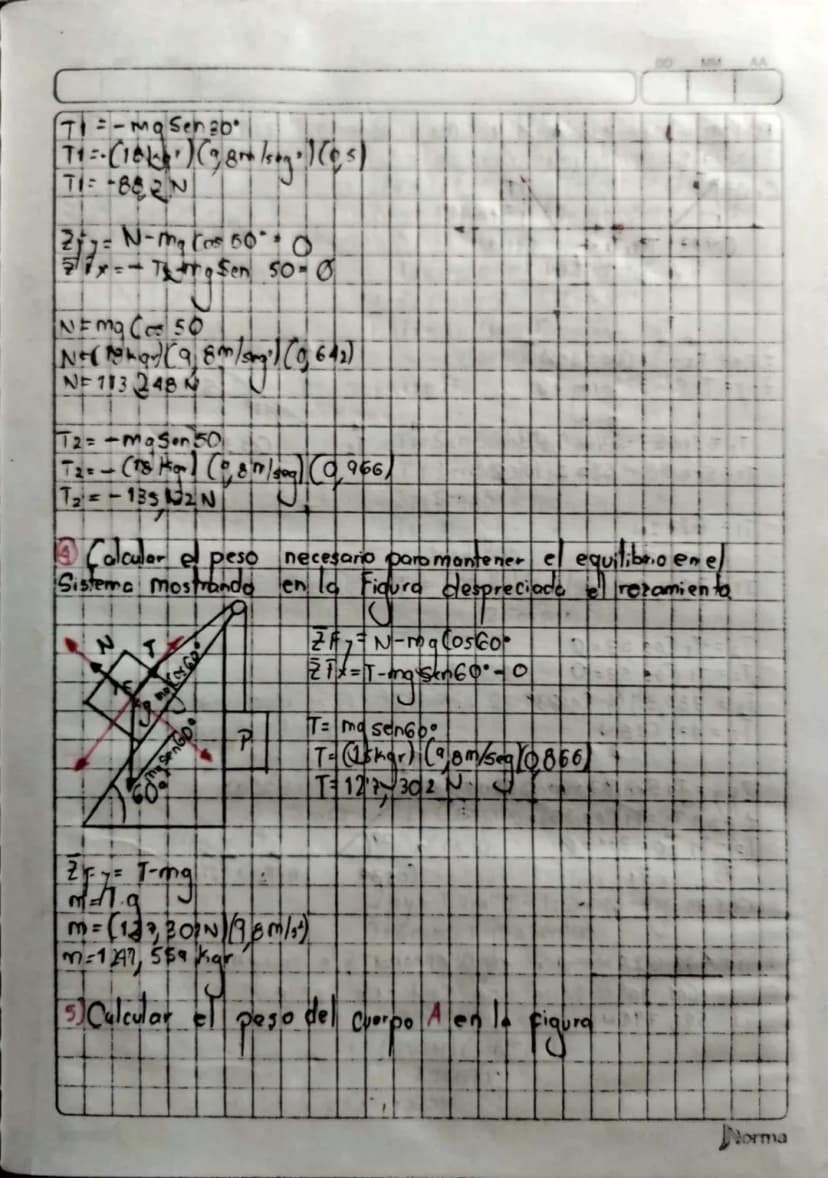 DD MM AA
T1 = -mg Sen 30°
T1 = -(18kgr)(9,8m/seg²)(0,5)
T1 = -88,2 N
ΣFy = N-mg Cos 50° = 0
ΣFx = - T2 mg Sen 50 = 0
N = mg Cos 50
N = (18kgr)(9,8m/seg²)(0,642)
N = 113,248 N
T2 = -mg Sen 50
T2 = -(18 kgr) (9,8m/seg) (0,966)
T2 = -135,132 N
4) Calcular el peso necesario para mantener el equilibrio en el
Sistema mostrando en la Figura despreciado el rozamiento
N T
mg Cos 60°
mg sen 60°
60°
P
ΣFy = N-mg Cos 60°
ΣFx = T-mg sen 60° = 0
T = mg sen 60°
T = (15kgr) (9,8m/seg)(0,866)
T = 127,302 N
ΣFy = T-mg
m = T.g
m = (127,302N)(9,8m/s²)
m = 1247,559 kgr
5) Calcular el peso del cuerpo A en la figura
Norma